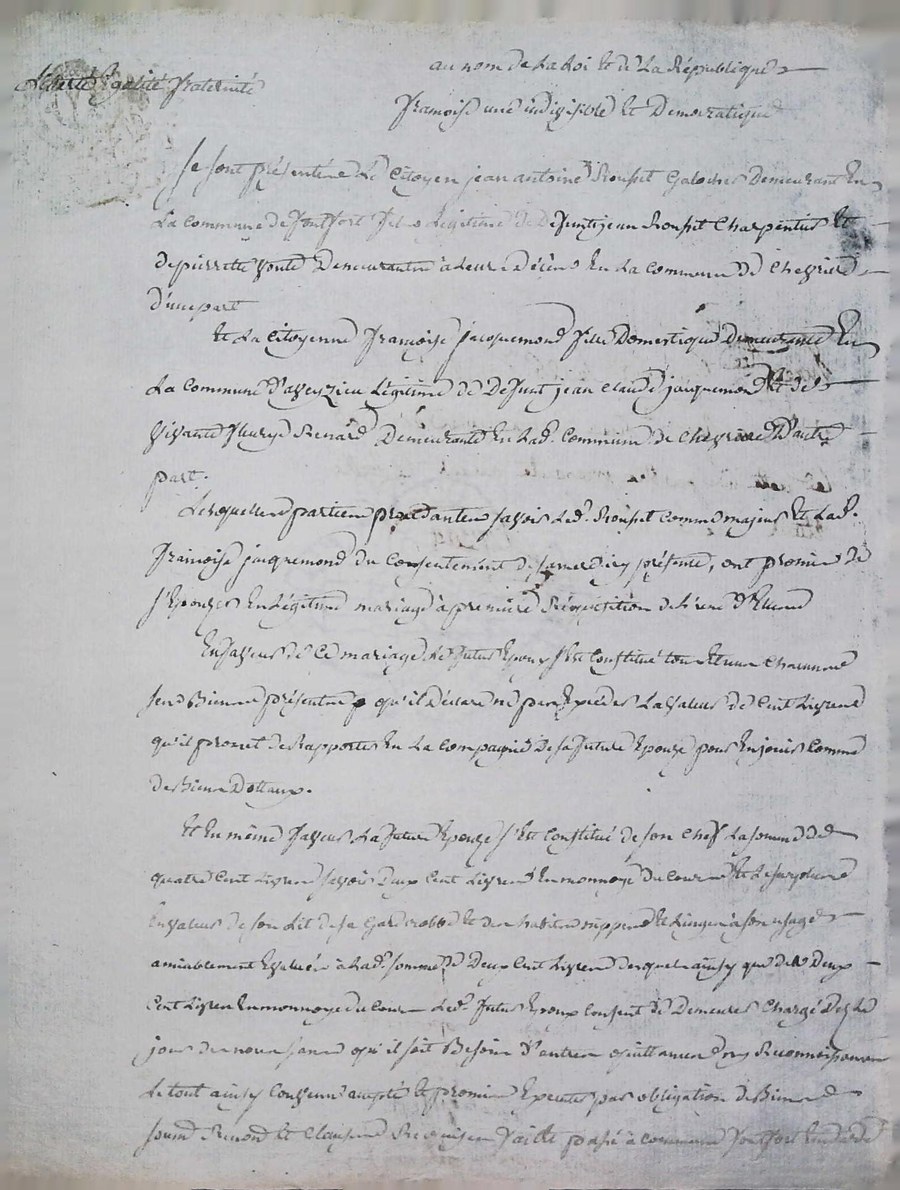 Liberté Egalité Fraternité
au nom de La Loi Et de La République
francoise une indivisible Et Democratique
Se sont présenté Le Citoyen jean antoine Demeurant En
La commune de fontfort fils Légitime de Defunt jean Charpentier Et
de pierrette Demeurante à Leure Décès En La Commune de Chevrieres
D'une part
Et La Citoyenne françoise jacquemond fille Domestique Demeurante En
La Commune D'aveyzieu Légitime de Defunt jean Claude jacquemond Et de
vivante fleurye Renard Demeurante En Lad. Commune de Chevrieres D'autre
part.
Lesquelles parties procedantes savoir Led. Comme majeur Et Lad.
francoise jacquemond du Consentement de sa mere icy présente, ont promis de
s'Epouzer En Légitime mariage à première Réquisition de L'une D'Elles
En faveur de Ce mariage Le futur Epoux s'Est Constitué tous Et uns Chacuns
ses Biens présents qu'il Déclare ne pas Exceder La valeur de Cent Livres
qu'il promet de Rapporter En La Compagnie De sa future Epouze pour En jouir Comme
de Biens Dottaux.
Et En même faveur La future Epouze s'Est Constitué de son Chef La somme de
quatre Cent Livres savoir Deux Cent Livres En monnoye du Cours Et Le surplus
En valeur de son Lit de sa Garderobbe Et des habits nippes Et Linges à son usage
amiablement Evalués à Lad. somme de Deux Cent Livres desquels ainsy que des Deux
Cent Livres En monnoye du Cours Led. futur Epoux Consent de Demeurer Chargé Des Le
jour des noces sans qu'il soit Besoin D'autres quittances ny Reconnoissances
Le tout ainsy Convenu accepté Et promis Executer par obligation de Biens
soums. Renonc. Et Clauses Requises fait Et passé à commune fontfort